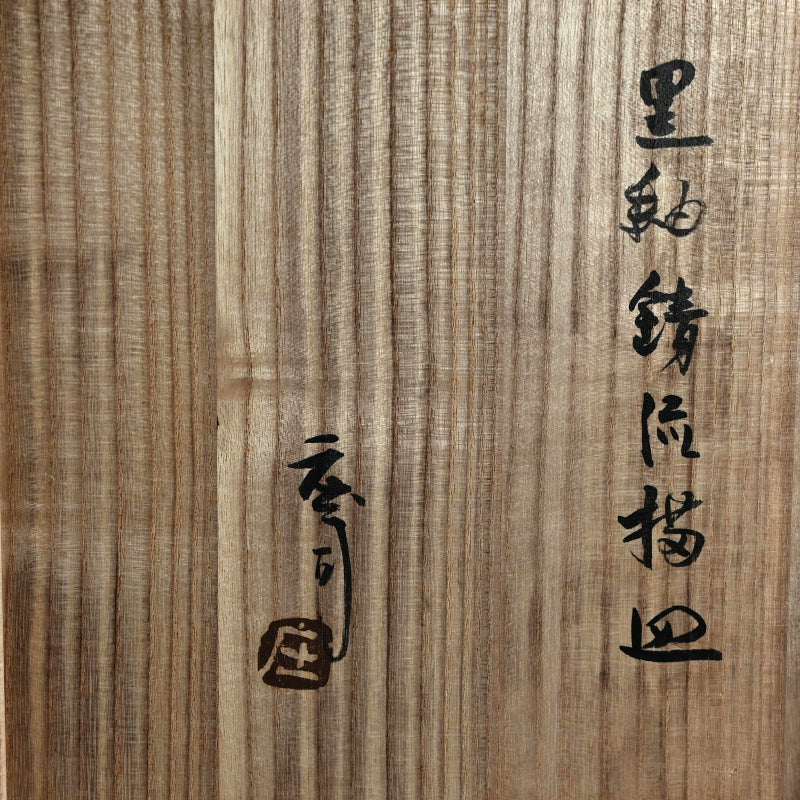 黒釉錆流描皿
庄司
庄